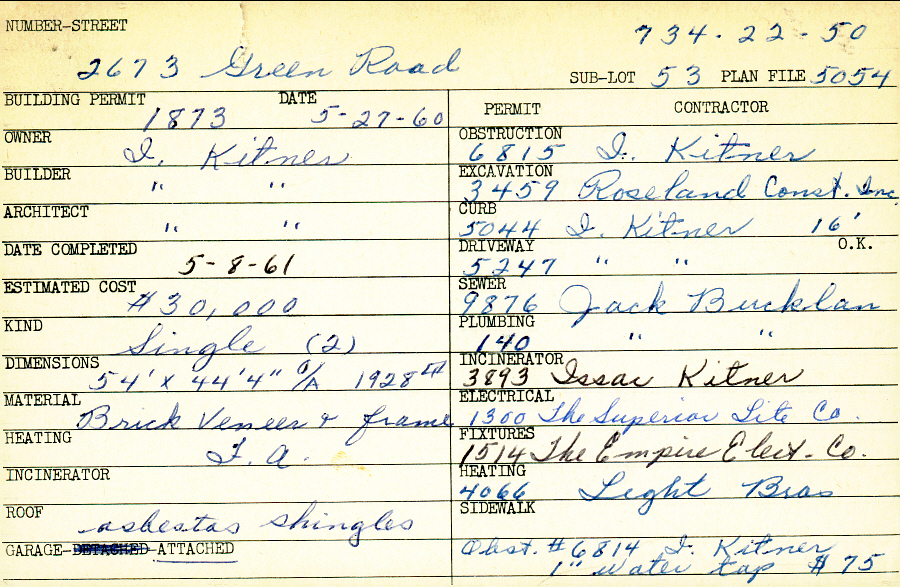 NUMBER-STREET
734-22-50
2673 Green Road
SUB-LOT 53 PLAN FILE 5054
BUILDING PERMIT DATE
1873 5-27-60
OWNER
I. Kitner
BUILDER
" "
ARCHITECT
" "
DATE COMPLETED
5-8-61
ESTIMATED COST
#30,000
KIND
Single (2)
DIMENSIONS
54' x 44'4" O/A 1928
MATERIAL
Brick Veneer & frame
HEATING
F.A.
INCINERATOR
ROOF
asbestos shingles
GARAGE-DETACHED-ATTACHED
PERMIT CONTRACTOR
OBSTRUCTION
6815 I. Kitner
EXCAVATION
3459 Roseland Const. Inc
CURB
5044 I. Kitner 16'
DRIVEWAY O.K.
5247 " "
SEWER
9876 Jack Bucklan
PLUMBING
140 " "
INCINERATOR
3893 Issac Kitner
ELECTRICAL
1300 The Superior Lite Co.
FIXTURES
1514 The Empire Elect. Co.
HEATING
4066 Leght Bros
SIDEWALK
Obst. #6814 I. Kitner
1" water tap $75